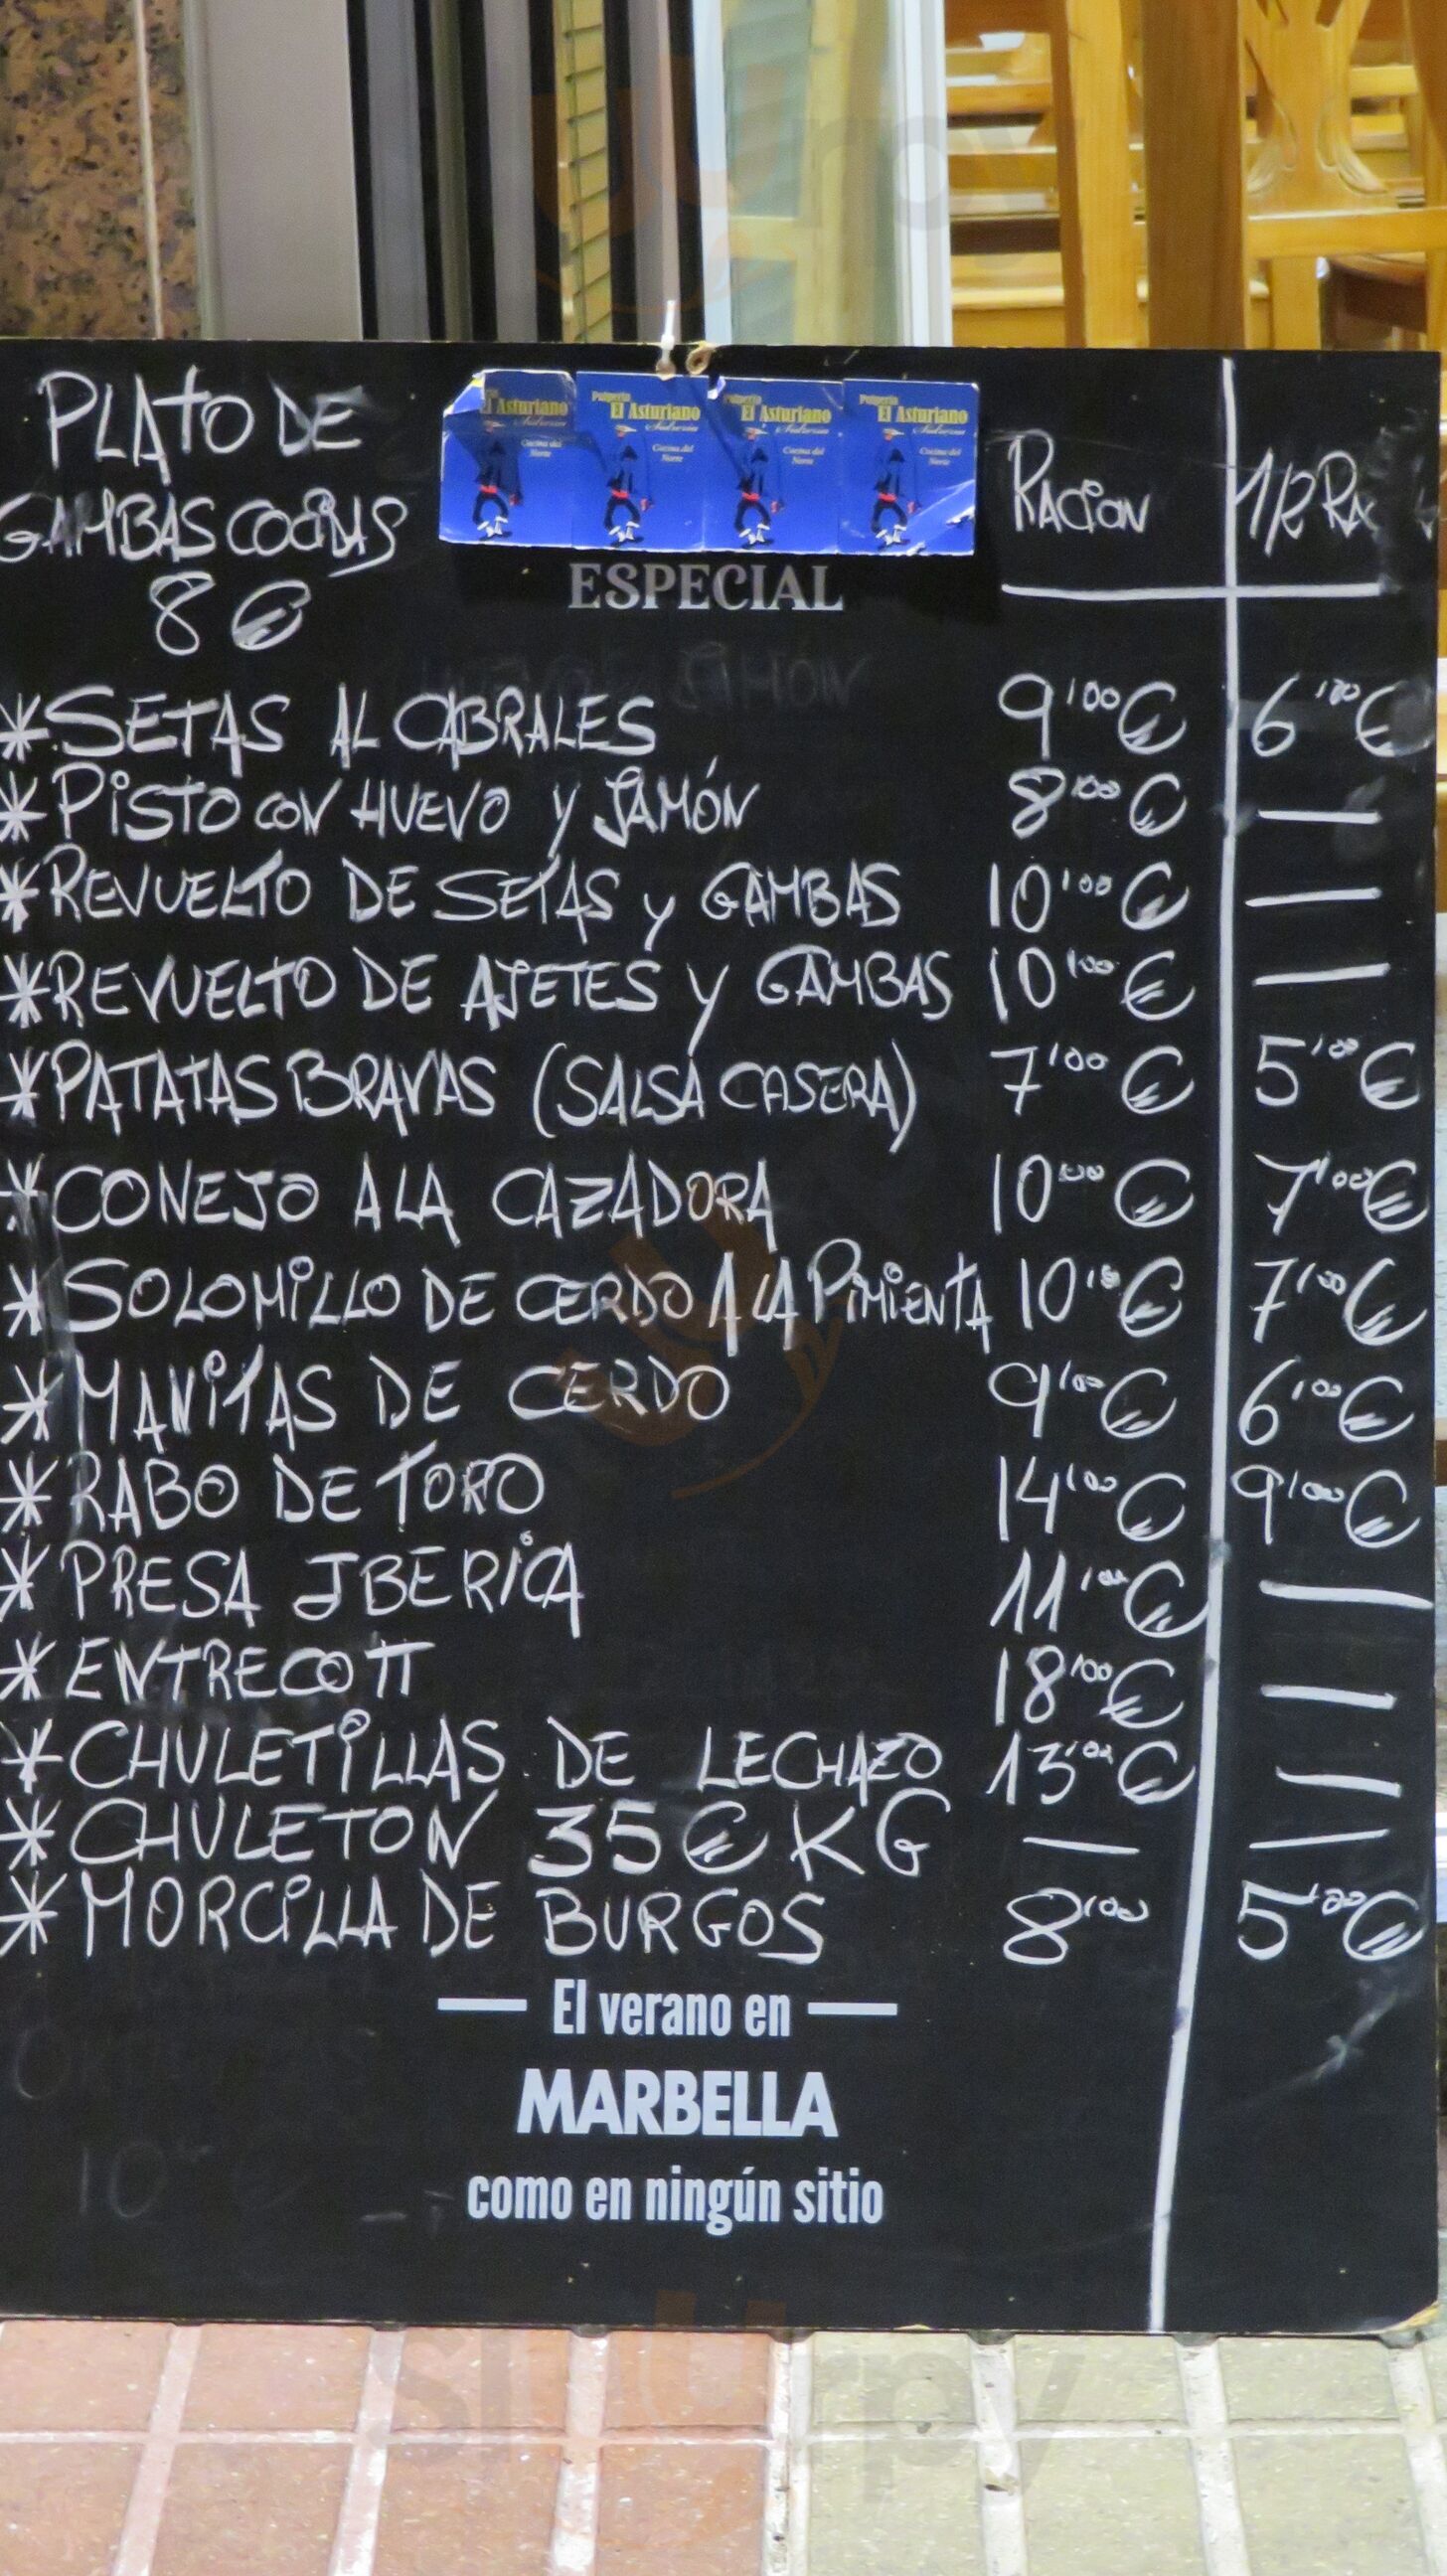 PLATO DE
GAMBAS COCIDAS
8€
El Asturiano
Cocina del
Norte
Pulpería
El Asturiano
Sidrería
Cocina del
Norte
Pulpería
El Asturiano
Sidrería
Cocina del
Norte
Pulpería
El Asturiano
Sidrería
Cocina del
Norte
ESPECIAL
RACION 1/2 RA
*SETAS AL CABRALES 9'00€ 6'00€
*PISTO CON HUEVO Y JAMÓN 8'00€ —
*REVUELTO DE SETAS y GAMBAS 10'00€ —
*REVUELTO DE AJETES y GAMBAS 10'00€ —
*PATATAS BRAVAS (SALSA CASERA) 7'00€ 5'00€
*CONEJO A LA CAZADORA 10'00€ 7'00€
*SOLOMILLO DE CERDO A LA PIMIENTA 10'00€ 7'00€
*MANITAS DE CERDO 9'00€ 6'00€
*RABO DE TORO 14'00€ 9'00€
*PRESA IBERICA 11'00€ —
*ENTRECOTT 18'00€ —
*CHULETILLAS DE LECHAZO 13'00€ —
*CHULETON 35€ KG — —
*MORCILLA DE BURGOS 8'00 5'00€
— El verano en —
MARBELLA
como en ningún sitio